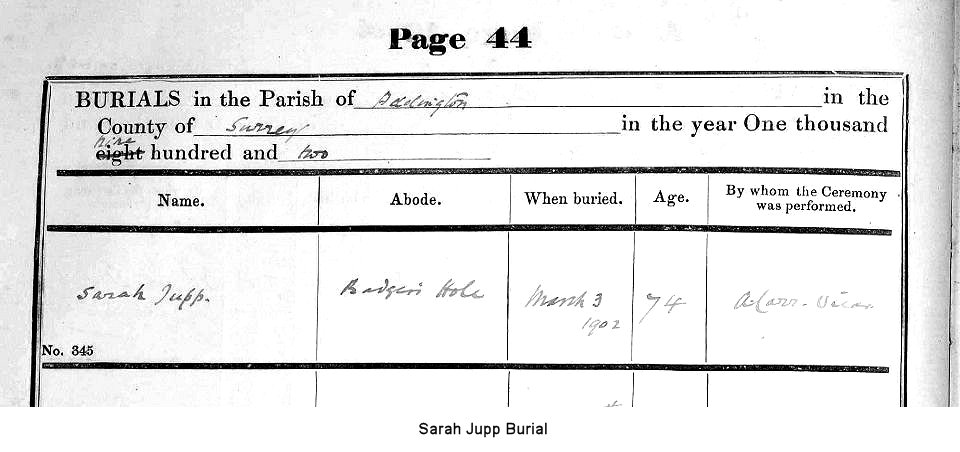 Page 44
BURIALS in the Parish of Addington in the
County of Surrey in the year One thousand
nine
eight hundred and two
Name. Abode. When buried. Age. By whom the Ceremony was performed.
Sarah Jupp. Badgers Hole March 3 1902 74 A. Carr. Vicar
No. 345
Sarah Jupp Burial